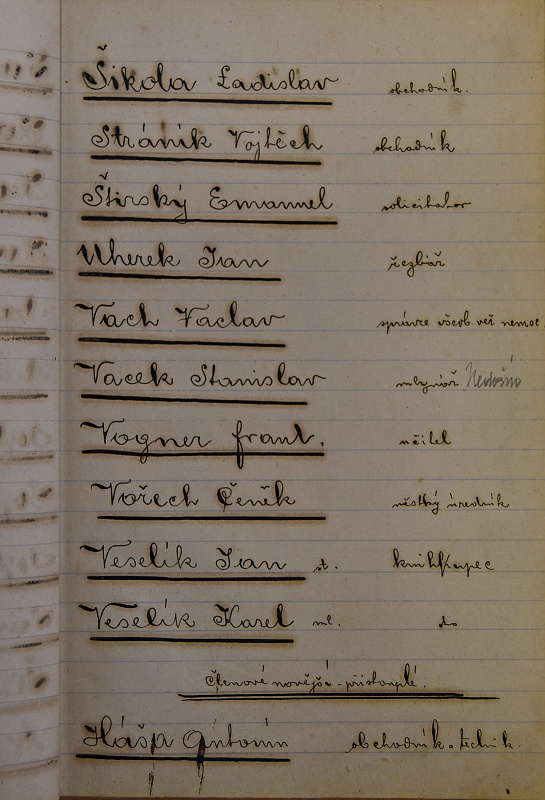 Šikola Ladislav obchodník.
Stráník Vojtěch obchodník
Štirský Emanuel solicitator
Uherek Jan řezbář
Vach Václav správce všeob. veř. nemoc
Vacek Stanislav mlynář
Vogner frant. učitel
Vořech Čeněk městský úředník
Veselík Jan st. knihkupec
Veselík Karel ml. dto
Členové novější - přistouplé.
Háša Antonín obchodník. technik.